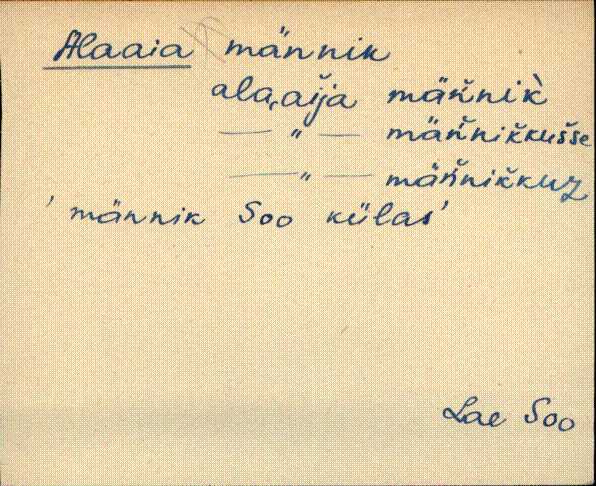 Alaaia männik
ala,aĭja män̆nik̀
— " — män̆nik̆kuš̆se
— " — män̆nik̆kuz
' männik Soo külas'
Lae Soo